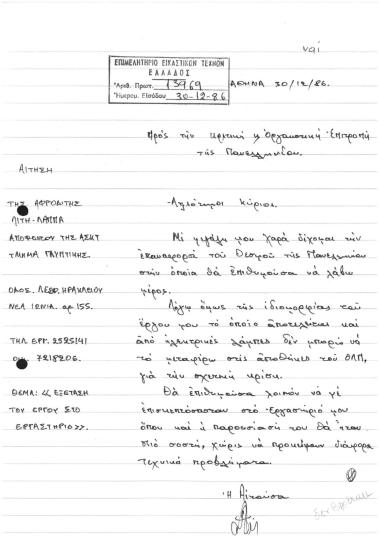 ναί
ΕΠΙΜΕΛΗΤΗΡΙΟ ΕΙΚΑΣΤΙΚΩΝ ΤΕΧΝΩΝ
ΕΛΛΑΔΟΣ
Αριθ. Πρωτ. 13969
Ημερομ. Εισόδου 30-12-86
ΑΘΗΝΑ 30/12/86.
Πρός τήν κριτική η Οργανωτική Επιτροπή
τῆς Πανελληνίου.
ΑΙΤΗΣΗ
ΤΗΣ ΑΦΡΟΔΙΤΗΣ
ΛΙΤΗ-ΛΑΠΠΑ
ΑΠΟΦΟΙΤΟΥ ΤΗΣ ΑΣΚΤ
ΤΜΗΜΑ ΓΛΥΠΤΙΚΗΣ.
ΟΔΟΣ. ΛΕΩΦ. ΗΡΑΚΛΕΙΟΥ
ΝΕΑ ΙΩΝΙΑ. αρ 155.
ΤΗΛ. ΕΡΓ. 2525141
7218206.
ΘΕΜΑ: << ΕΞΕΤΑΣΗ
ΤΟΥ ΕΡΓΟΥ ΣΤΟ
ΕΡΓΑΣΤΗΡΙΟ>>.
Αξιότιμοι κύριοι.
Μέ μεγάλη μου χαρά δέχομαι τήν
επαναφορά τοῦ Θεσμοῦ τῆς Πανελληνίου
στήν ὁποία θά ἐπιθυμοῦσα νά λάβω
μέρος.
Λόγω όμως τῆς ἰδιομορφίας τοῦ
ἔργου μου τό ὁποῖο ἀποτελεῖται καί
ἀπό ηλεκτρικές λάμπες δέν μπορῶ νά
τό μεταφέρω στίς ἀποθῆκες τοῦ ΟΛΠ,
γιά τήν σχετική κρίση.
Θά ἐπιθυμοῦσα λοιπόν νά μέ
ἐπισκεπτόσασταν στό ἐργαστήριό μου
ὅπου καί ἡ παρουσίασή του θά ἦταν
πιό σωστή, χωρίς νά προκύψουν διάφορα
τεχνικά προβλήματα.
Ἡ Αἰτοῦσα